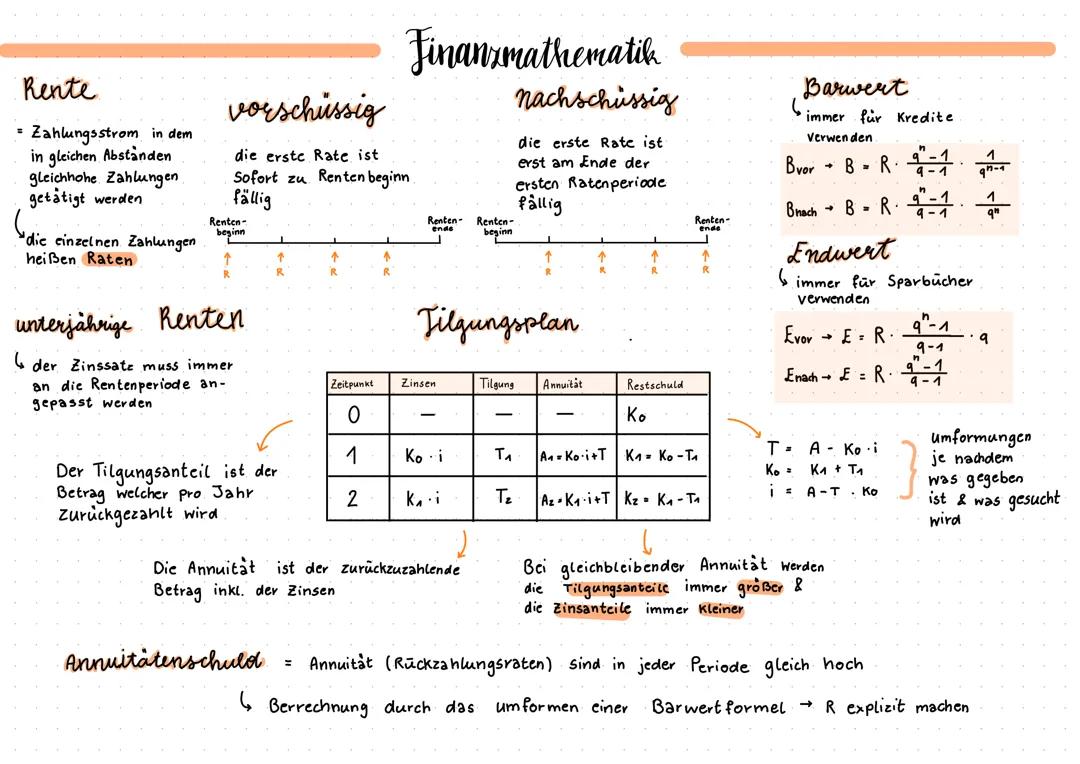 Finanzmathematik
Rente
= Zahlungsstrom in dem
in gleichen Abständen
gleichhohe Zahlungen
getätigt werden
die einzelnen Zahlungen
heißen Raten
vorschüssig
die erste Rate ist
Sofort zu Rentenbeginn
fällig
Renten-
beginn
Renten-
ende
R R R R
nachschüssig
die erste Rate ist
erst am Ende der
ersten Ratenperiode
fällig
Renten-
beginn
Renten-
ende
R R R R
Barwert
immer für Kredite
verwenden
Bvor → B = R · (qⁿ-1)/(q-1) · 1/qⁿ⁻¹
Bnach → B = R · (qⁿ-1)/(q-1) · 1/qⁿ
Endwert
immer für Sparbücher
verwenden
Evor → E = R · (qⁿ-1)/(q-1) · q
Enach → E = R · (qⁿ-1)/(q-1)
unterjährige Renten
der Zinssatz muss immer
an die Rentenperiode an-
gepasst werden
Tilgungsplan
Zeitpunkt Zinsen Tilgung Annuität Restschuld
0 — — — K₀
1 K₀ · i T₁ A₁ = K₀·i+T K₁ = K₀ - T₁
2 K₁ · i T₂ A₂ = K₁·i+T K₂ = K₁ - T₁
Der Tilgungsanteil ist der
Betrag welcher pro Jahr
Zurückgezahlt wird
T = A - K₀ · i
K₀ = K₁ + T₁
i = A-T . K₀
Umformungen
je nachdem
was gegeben
ist & was gesucht
wird
Die Annuität ist der zurückzuzahlende
Betrag inkl. der Zinsen
Bei gleichbleibender Annuität werden
die Tilgungsanteile immer größer &
die Zinsanteile immer Kleiner
Annuitätenschuld = Annuität (Rückzahlungsraten) sind in jeder Periode gleich hoch
Berrechnung durch das umformen einer Barwertformel → R explizit machen